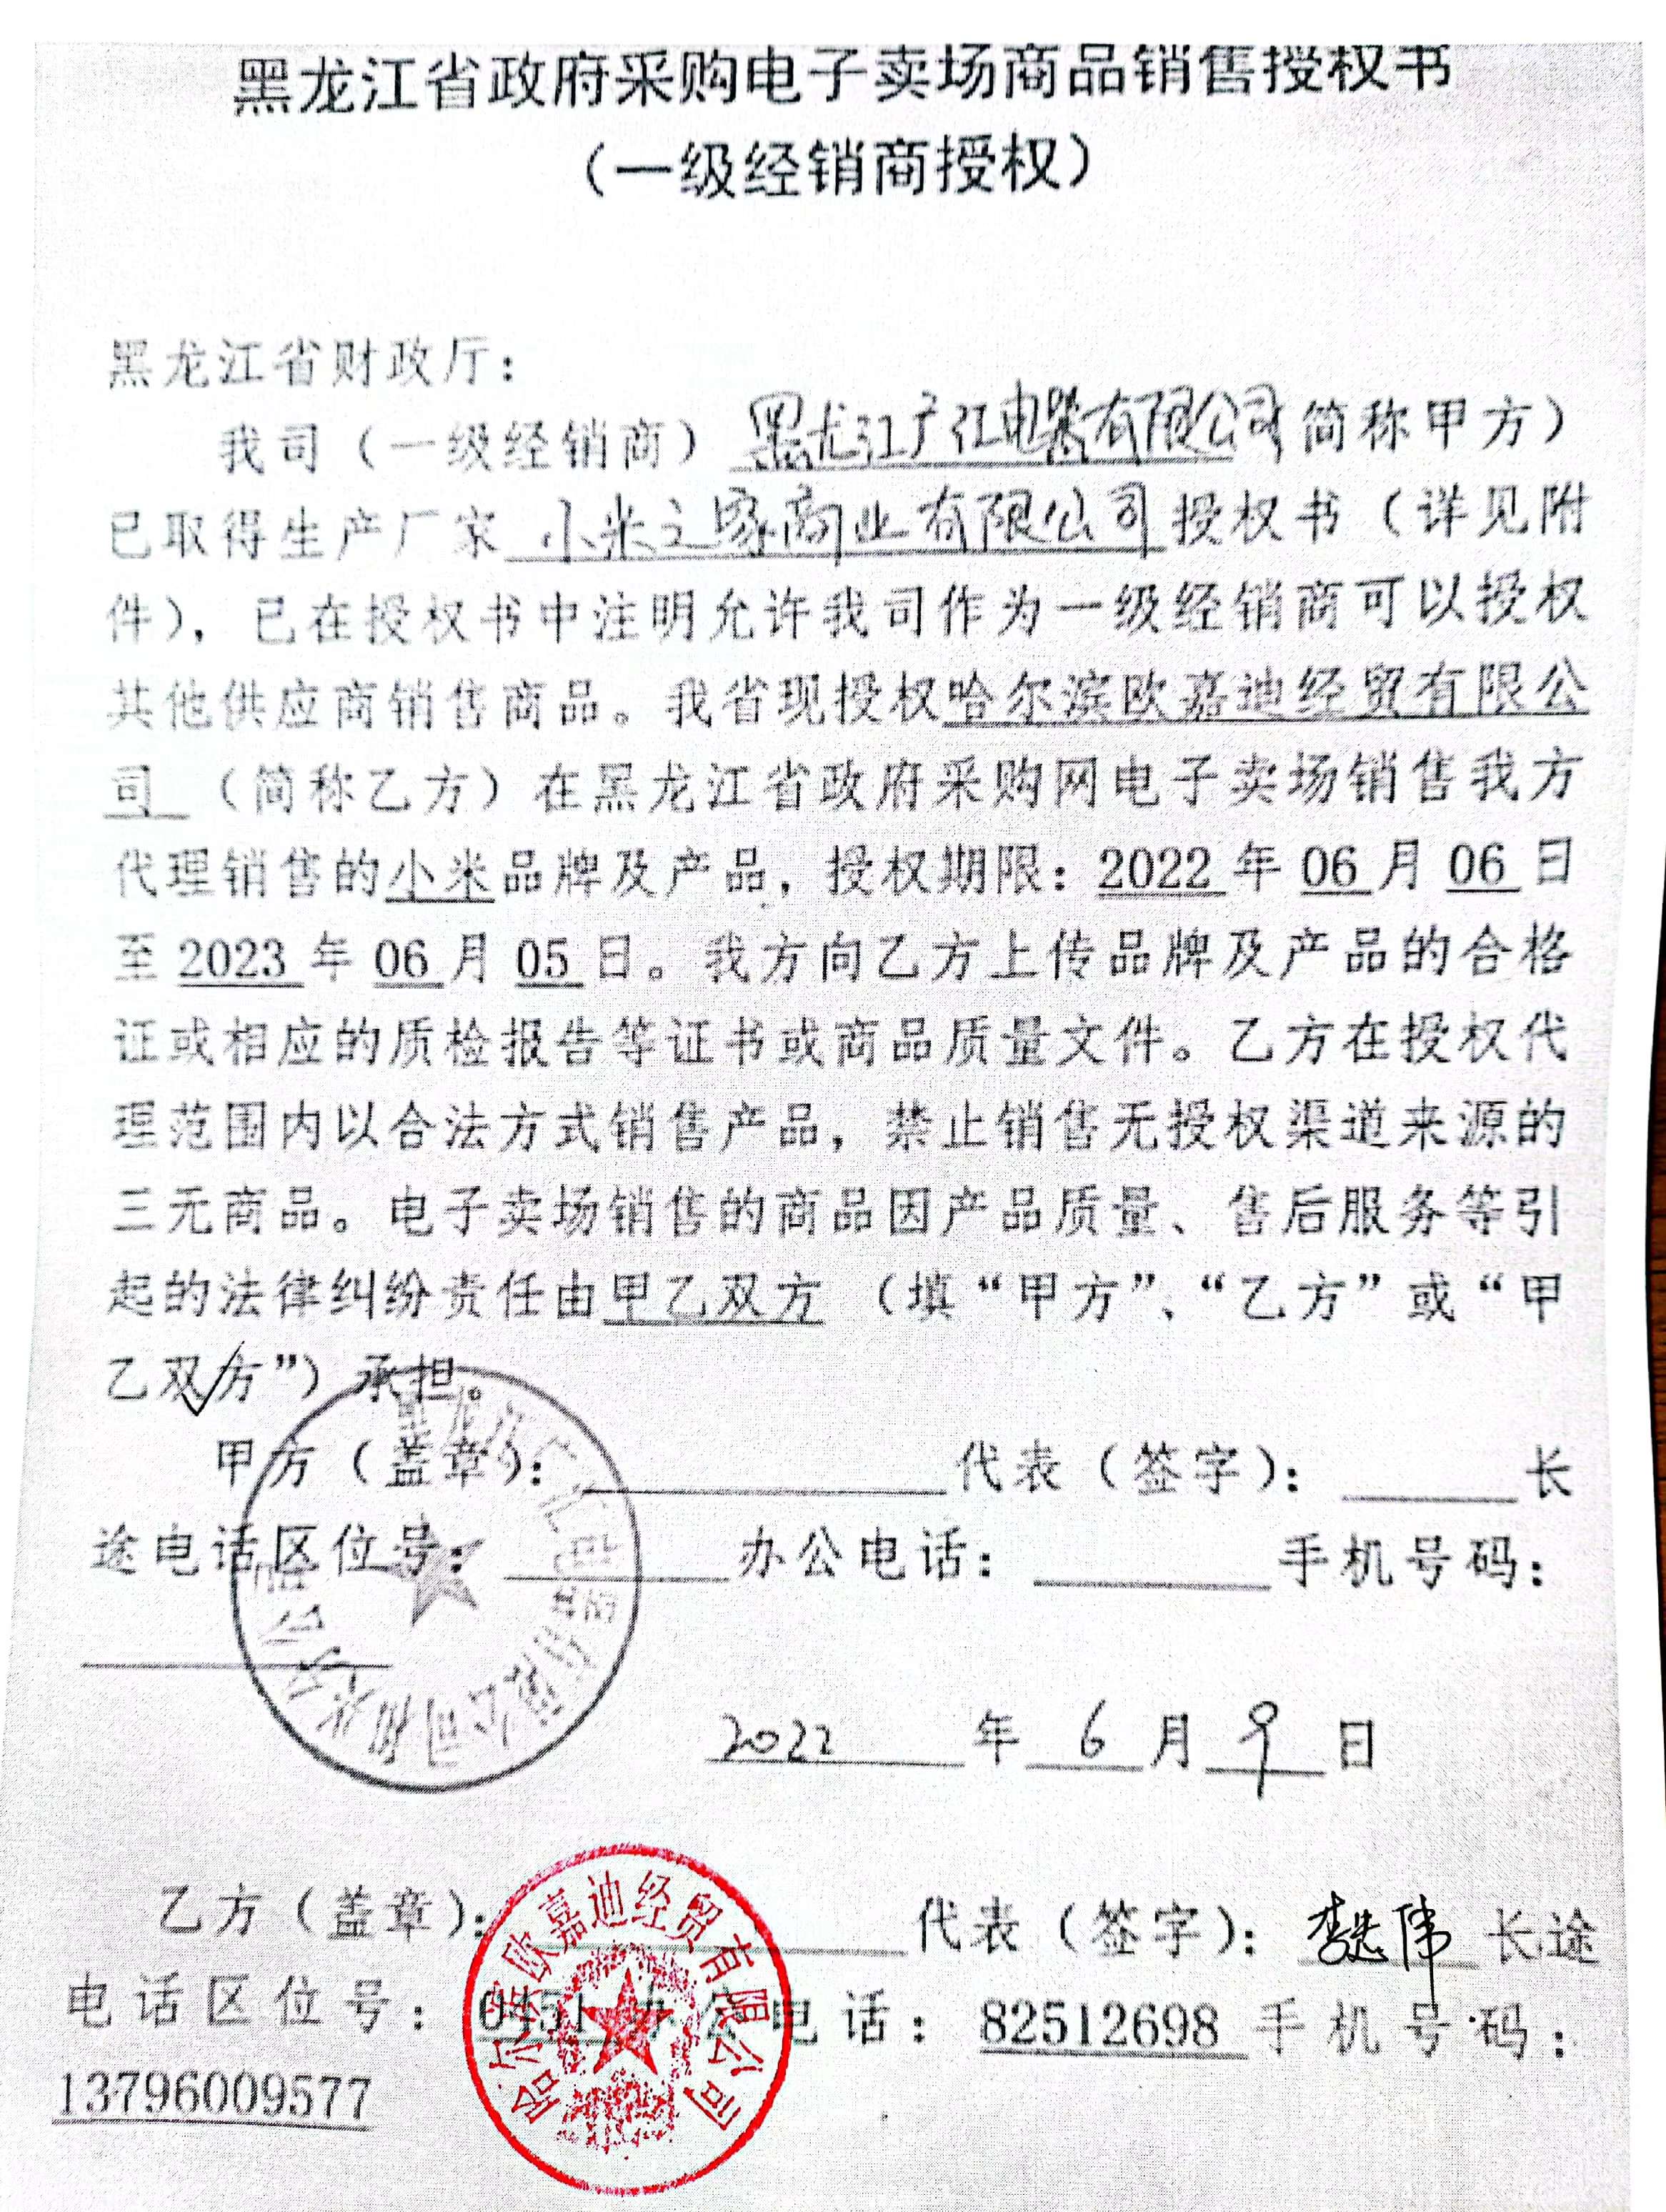 黑龙江省政府采购电子卖场商品销售授权书
（一级经销商授权）
黑龙江省财政厅：
我司（一级经销商）黑龙江广江电器有限公司简称甲方）
已取得生产厂家 小米之家商业有限公司授权书（详见附
件），已在授权书中注明允许我司作为一级经销商可以授权
其他供应商销售商品。我省现授权哈尔滨欧嘉迪经贸有限公
司 （简称乙方）在黑龙江省政府采购网电子卖场销售我方
代理销售的小米品牌及产品，授权期限：2022 年 06 月 06 日
至 2023 年 06 月 05 日。我方向乙方上传品牌及产品的合格
证或相应的质检报告等证书或商品质量文件。乙方在授权代
理范围内以合法方式销售产品，禁止销售无授权渠道来源的
三无商品。电子卖场销售的商品因产品质量、售后服务等引
起的法律纠纷责任由甲乙双方 （填“甲方”、“乙方”或“甲
乙双方”）承担。
甲方（盖章）： 代表（签字）： 长
途电话区位号： 办公电话： 手机号码：
2022 年 6 月 9 日
乙方（盖章）： 代表（签字）： 长途
电话区位号：0451 办公电话：82512698 手机号码：
13796009577
哈尔滨欧嘉迪经贸有限公司